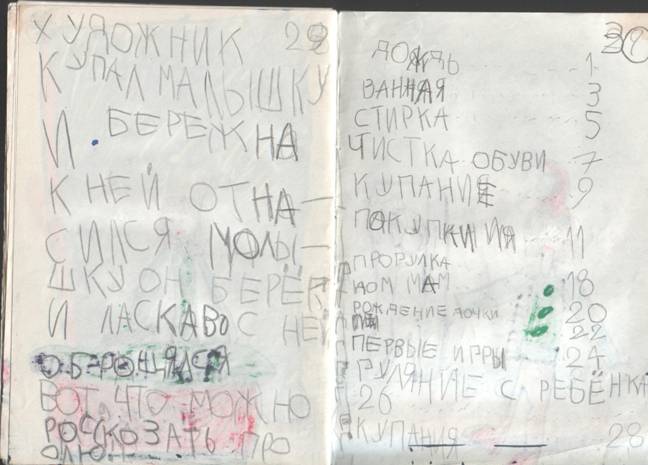 ХУДОЖНИК 29
КУПАЛ МАЛЫШКУ
И БЕРЕЖНА
К НЕЙ ОТНА—
СИЛСЯ МОЛЫ—
ШКУ ОН БЕРЁГ
И ЛАСКАВО С НЕЙ
ОБЕРОЩЯЛСЯ
ВОТ ЧТО МОЖНО
РОССКОЗАТЬ ПРО
ДОЖДЬ 1
ВАННАЯ 3
СТИРКА 5
ЧИСТКА ОБУВИ 7
КУПАНИЕ 9
ПОКУПКИ 11
ПРОГУЛКА
ДОМ МАМ 18
РОЖДЕНИЕ ДОЧКИ 20
22
ПЕРВЫЕ ИГРЫ 24
ГУЛЯНИЕ С РЕБЁНКА
26
КУПАНИЯ 28